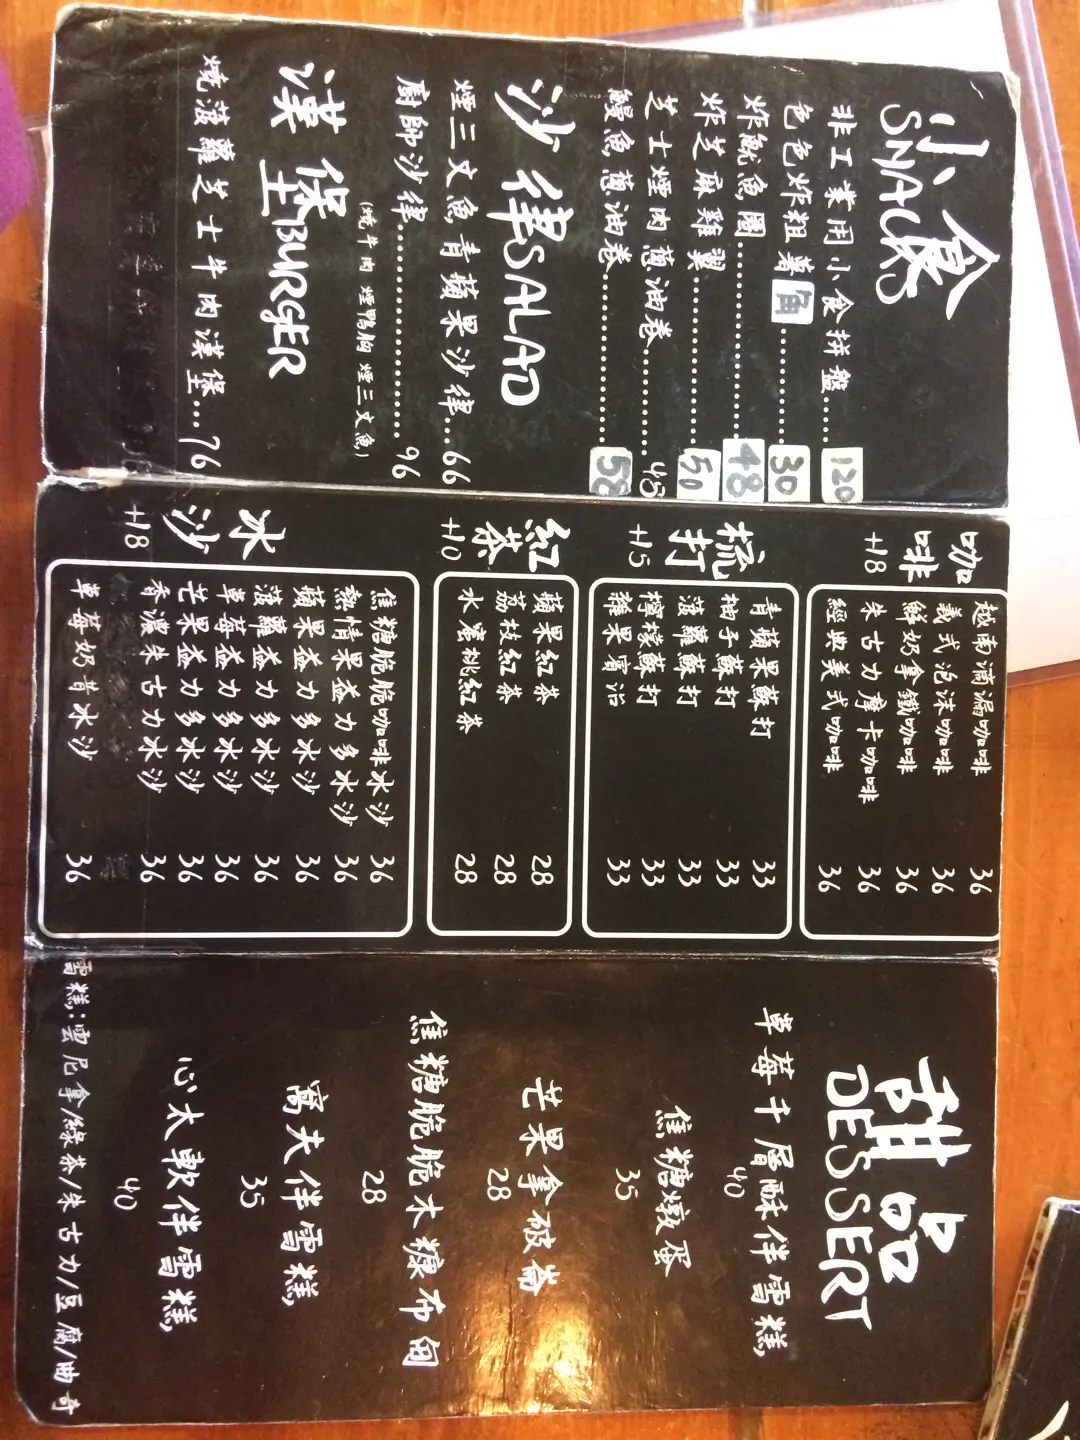 小食
SNACKS
非工業用小食拼盤......120
色色炸粗薯角......30
炸魷魚圈......48
炸芝麻雞翼......50
芝士煙肉蔥油卷......48
鰻魚蔥油卷......58
沙律SALAD
煙三文魚青蘋果沙律...66
廚師沙律......96
(燒牛肉 煙鴨胸 煙三文魚)
漢堡BURGER
燒菠蘿芝士牛肉漢堡...76
咖啡
+18
越南滴漏咖啡 36
義式泡沫咖啡 36
鮮奶拿鐵咖啡 36
朱古力摩卡咖啡 36
經典美式咖啡 36
梳打
+15
青蘋果蘇打 33
柚子蘇打 33
菠蘿蘇打 33
檸檬蘇打 33
雜果賓治 33
紅茶
+10
蘋果紅茶 28
荔枝紅茶 28
水蜜桃紅茶 28
冰沙
+18
焦糖脆脆咖啡冰沙 36
熱情果益力多冰沙 36
蘋果益力多冰沙 36
菠蘿益力多冰沙 36
草莓益力多冰沙 36
芒果益力多冰沙 36
香濃朱古力冰沙 36
草莓奶昔冰沙 36
甜品
DESSERT
草莓千層酥伴雪糕
40
焦糖燉蛋
35
芒果拿破崙
28
焦糖脆脆木糠布甸
28
窩夫伴雪糕
35
心太軟伴雪糕
40
雪糕:雲尼拿/綠茶/朱古力/豆腐/曲奇